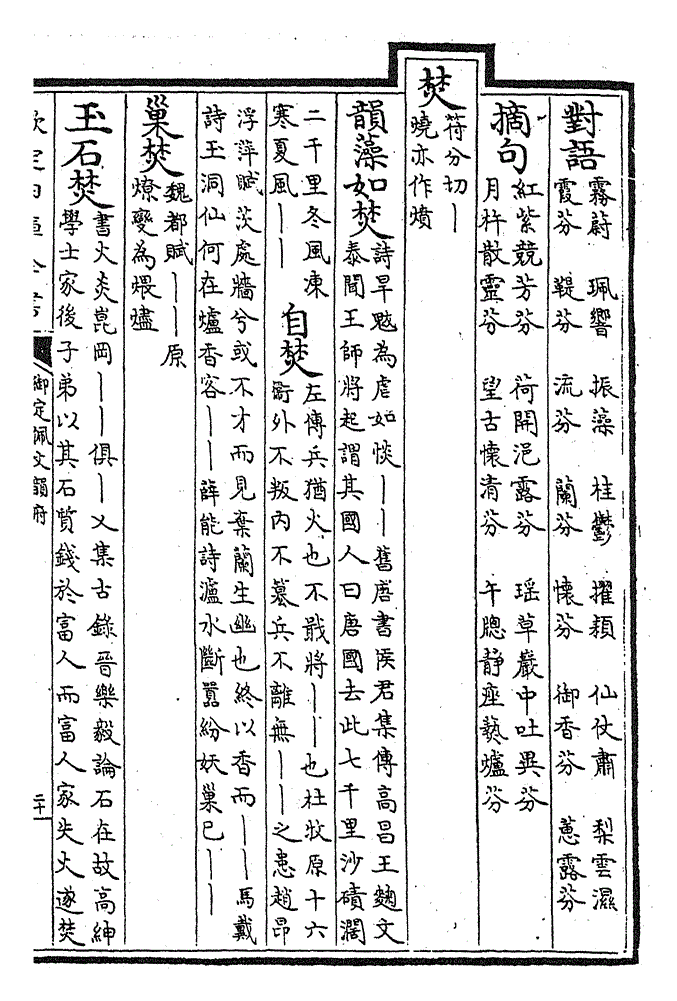 對語
霧蔚　珮響　振藻　桂鬱　擢穎　仙仗肅　梨雲濕
霞芬　鞮芬　流芬　蘭芬　懷芬　御香芬　蕙露芬
摘句
紅紫競芳芬　荷開浥露芬　瑶草巖中吐異芬
月杵散靈芬　望古懷清芬　午牕静座爇爐芬
焚
符分切丨
曉亦作燌
韻藻如焚
詩旱魃為虐如惔丨丨舊唐書侯君集傳高昌王麴文
泰聞王師將起謂其國人曰唐國去此七千里沙磧濶
二千里冬風凍
寒夏風丨丨
自焚
左傳兵猶火也不戢將丨丨也杜牧原十六
衛外不叛内不篡兵不離無丨丨之患趙昂
浮萍賦茨處牆兮或不才而見棄蘭生幽也終以香而丨丨馬戴
詩玉洞仙何在爐香客丨丨薛能詩瀘水斷囂紛妖巢已丨丨
巢焚
魏都賦丨丨原
燎變為煨燼
玉石焚
書火炎崑岡丨丨俱丨乂集古錄晉樂毅論石在故高紳
學士家後子弟以其石質錢於富人而富人家失火遂焚
欽定四庫全書
御定佩文韻府
二十